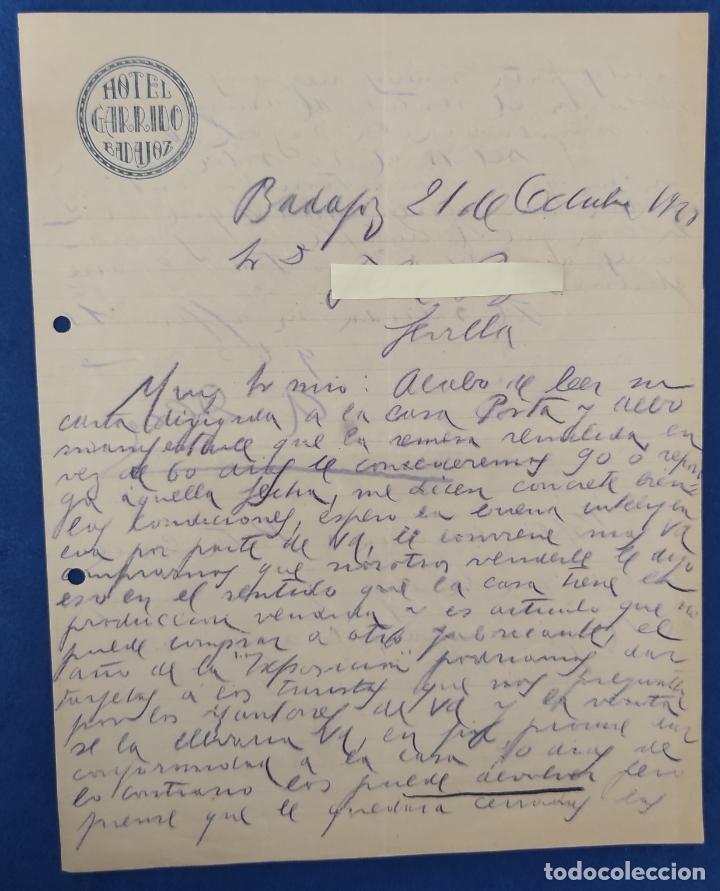 HOTEL
GARRIDO
BADAJOZ
Badajoz 21 de Octubre
Sr D
Sevilla
Muy Sr mio: Acabo de leer su
carta dirigida a la casa Porta y debo
manifestarle que la remesa remitida en
vez de 60 dias le concederemos 90 o
aquella fecha, me dicen
las condiciones, espero la buena
por parte de Vd, le conviene mas Vd
comprarnos que nosotros venderle le digo
eso en el sentido que la casa tiene la
produccion vendida y es articulo que no
puede comprar a otro fabricante, el
año de la "Exposicion" podriamos dar
tarjetas a los turistas que nos
por los de Vd y la venta
se la llevaria Vd, en fin,
conformidad a la casa 10 dias de
lo contrario los puede devolver pero
piense que le quedara las
todocoleccion.net